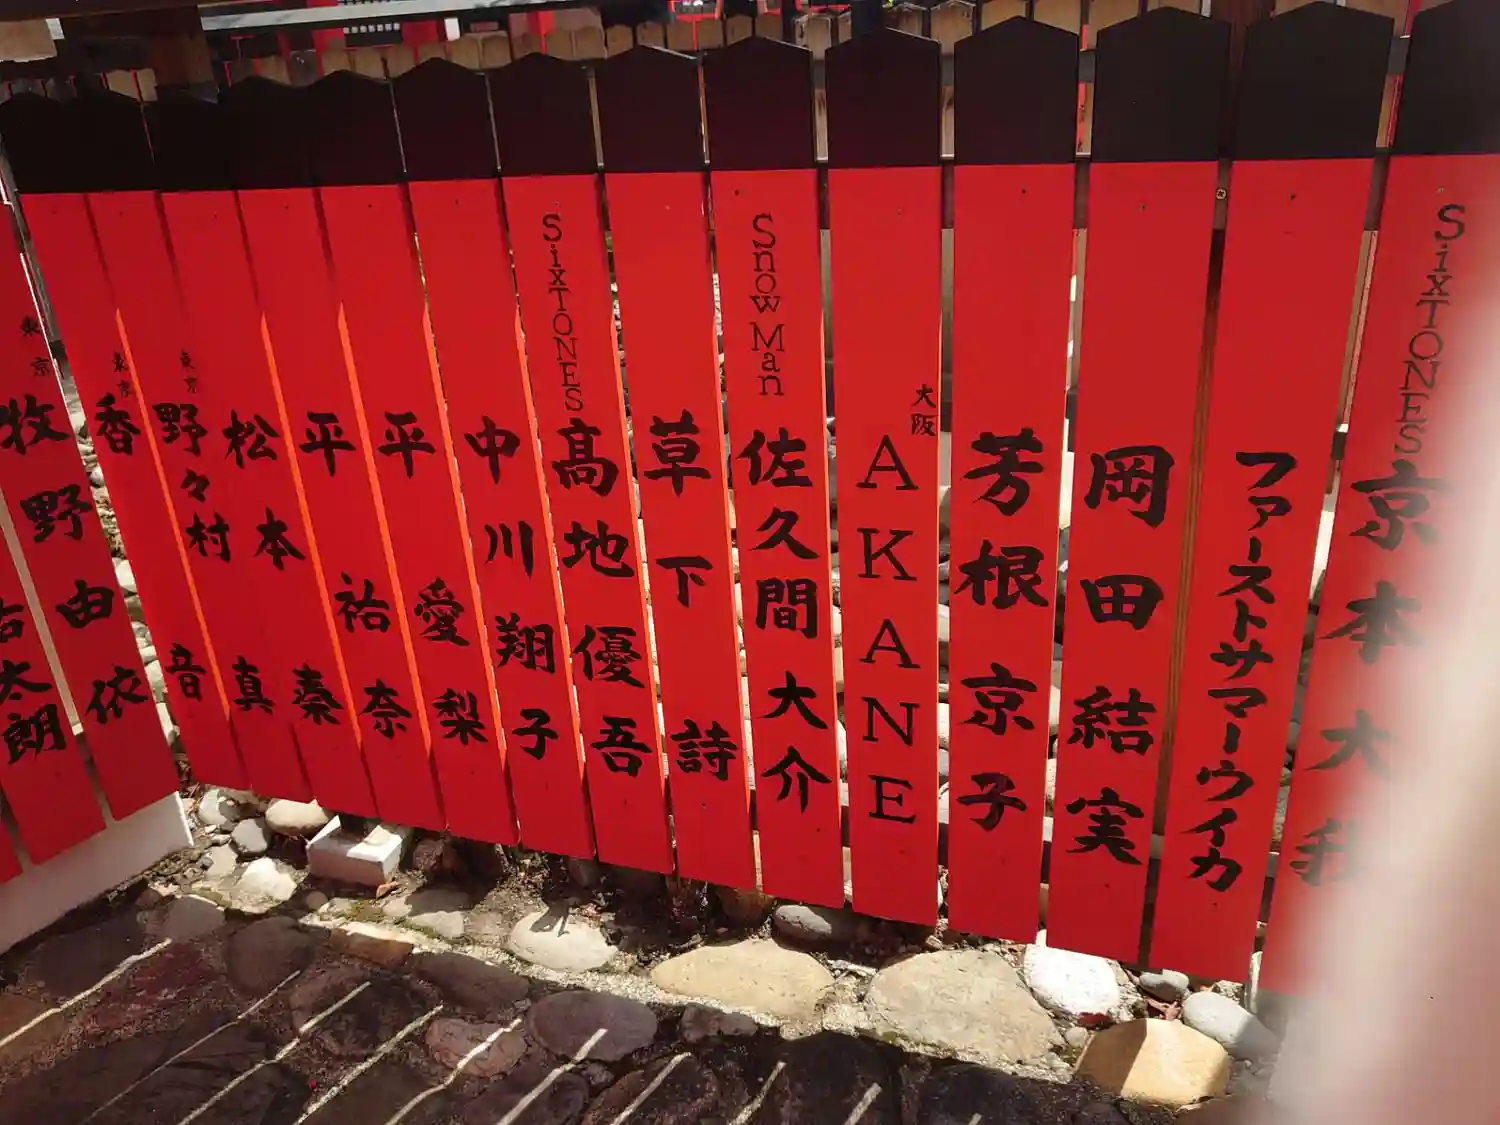 SixTONES
京本大我
ファーストサマーウイカ
岡田結実
芳根京子
大阪
AKANE
Snow Man
佐久間大介
草下詩
SixTONES
髙地優吾
中川翔子
平愛梨
平祐奈
松本秦
東京
野々村真
東京
香音
東京
牧野由依
太朗